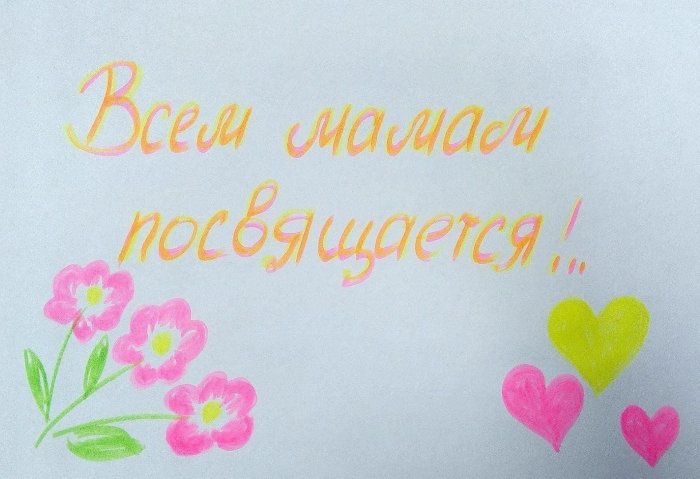 Всем мамам
посвящается!..